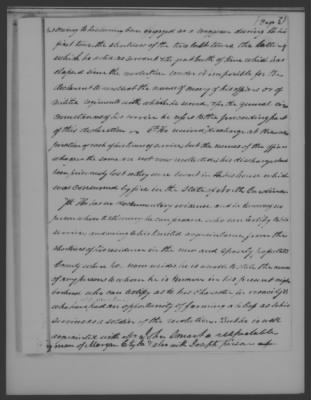 (Page 8)
owing to his having been engaged as a waggoner during the
first tour, the shortness of the two last tours, the
which he acted as servant & the great length of time which has
elapsed since the revolution render it impossible for the
declarant to recollect the names of many of his officers or of
militia regiments with which he served. For the general cir
cumstances of his service he refers to the preceeding part
of this declaration 6th He received discharges at the ex
piration of each of his tours of service, but the names of the officers
who gave the same are not now recollected, his discharges had
been previously lost or they were burnt in his house which
was consumed by fire in the State of North Carolina
7th He has no documentary evidence and he knows no
person whose testimony he can procure who can testify to his
service, and owing to his limited acquaintance from the
shortness of his residence in the new and sparsely populated
County where he now resides he is unable to state the names
of any persons to whom he is known in his present neigh
borhood who can testify as to his character for veracity &
who have had an opportunity of forming a belief as to his
services as a soldier of the revolution. But he is well
acquainted with John a respectable
man of Morgan City & also with Joseph